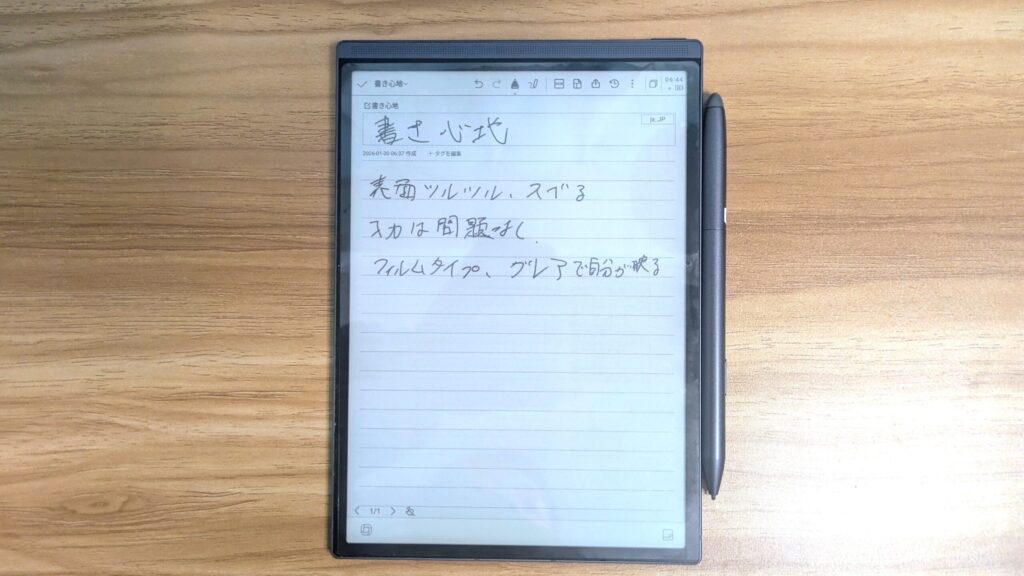 書き心地
06:44
書き心地
書き心地
ja_JP
2026-01-20 06:37 作成 + タグを編集
表面ツルツル、スベる
入力は問題なし
フィルムタイプ、グレアで自分が映る
1/1